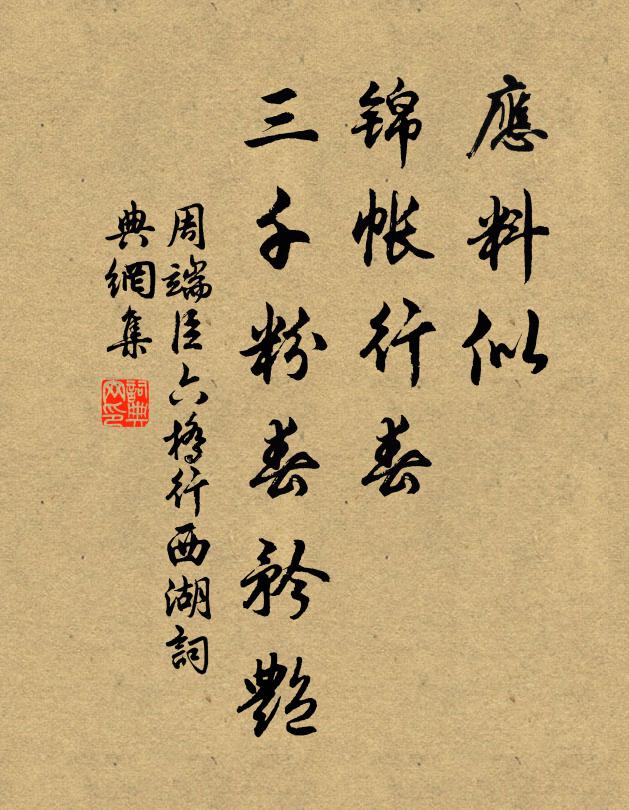 應料似
錦帳行春
三千粉春矜艷
周端臣六橋行西湖詞
典網集
詞典網印